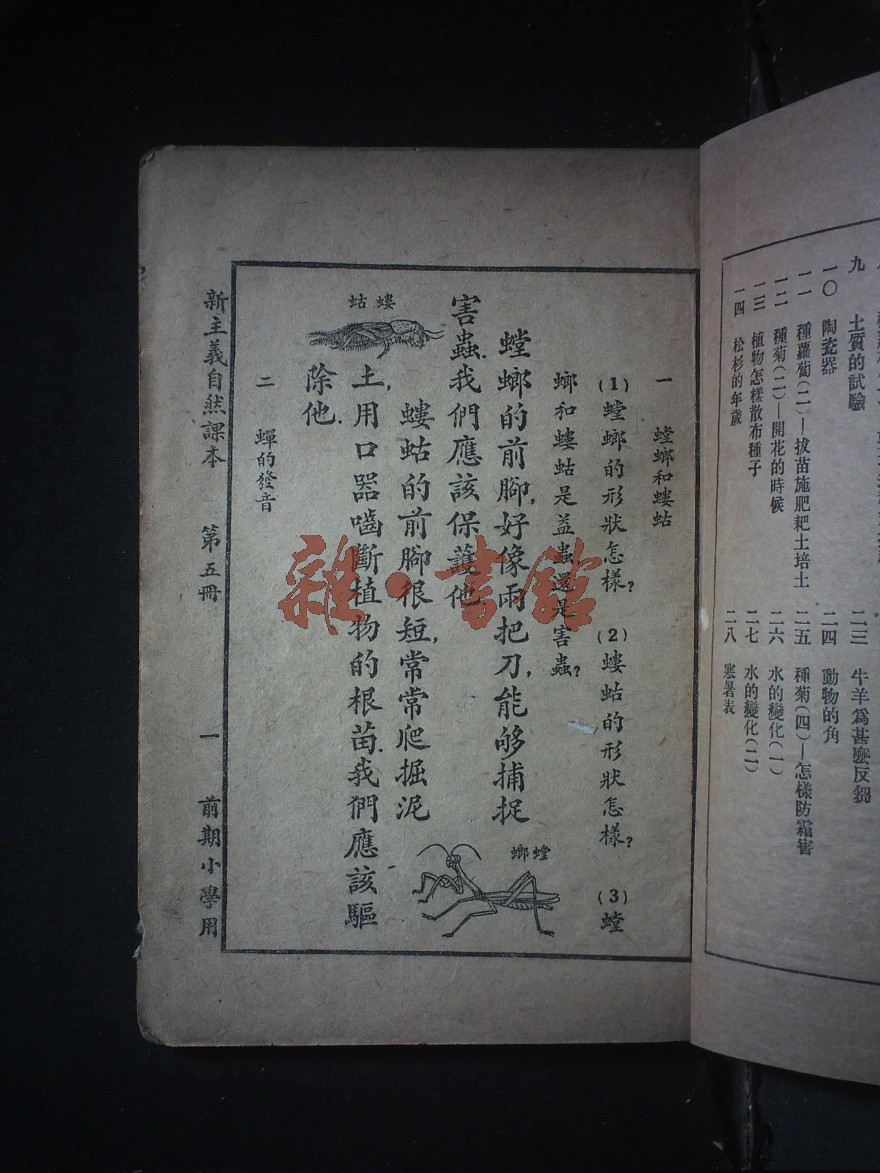 九　土質的試驗
一〇　陶瓷器
一一　種蘿蔔(二)—拔苗施肥耙土培土
一二　種菊(二)—開花的時候
一三　植物怎樣散布種子
一四　松杉的年歲
二三　牛羊爲甚麼反芻
二四　動物的角
二五　種菊(四)—怎樣防霜害
二六　水的變化(一)
二七　水的變化(二)
二八　寒暑表
一　螳螂和螻蛄
(1)螳螂的形狀怎樣?　(2)螻蛄的形狀怎樣?　(3)螳
螂和螻蛄是益蟲還是害蟲?
螳螂的前腳,好像兩把刀,能够捕捉
害蟲.我們應該保護他.
螻蛄的前腳很短,常常爬掘泥
土,用口器嚙斷植物的根苗.我們應該驅
除他.
螳螂
螻蛄
二　蟬的發音
新主義自然課本　第五冊　一　前期小學用
雜·書館